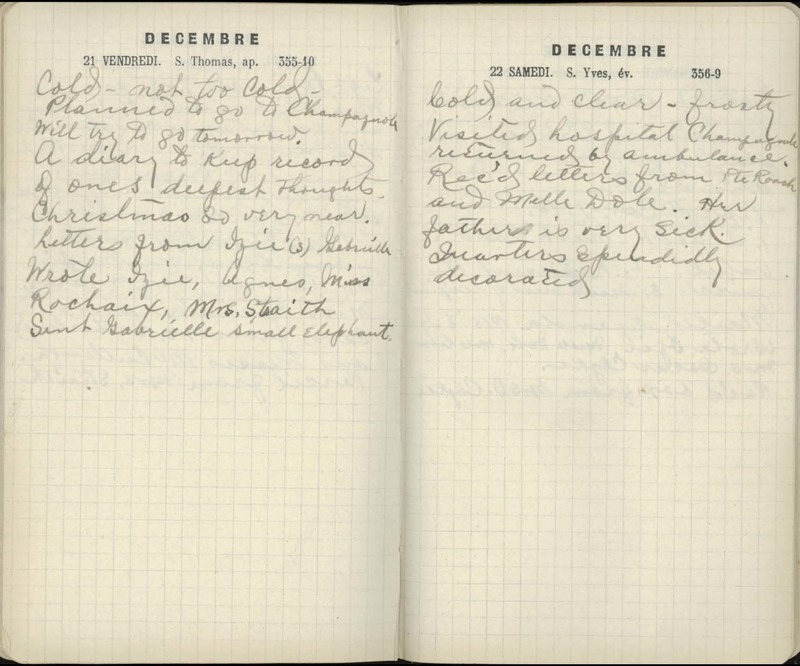 DECEMBRE
21 VENDREDI. S. Thomas, ap. 355-10
Cold - not too cold -
Planned to go to Champagnole
Will try to go tomorrow.
A diary to keep record
of ones deepest thoughts.
Christmas so very near.
Letters from Izie (3) Gabrielle
Wrote Izie, Agnes, Miss
Rochaix, Mrs. Staith
Sent Gabrielle small elephant.
DECEMBRE
22 SAMEDI. S. Yves, év. 356-9
Cold and clear - frosty
Visited hospital Champagnole
returned by ambulance.
Rec'd letters from
and Melle Dole. Her
father is very sick.
Quarters splendidly
decorated